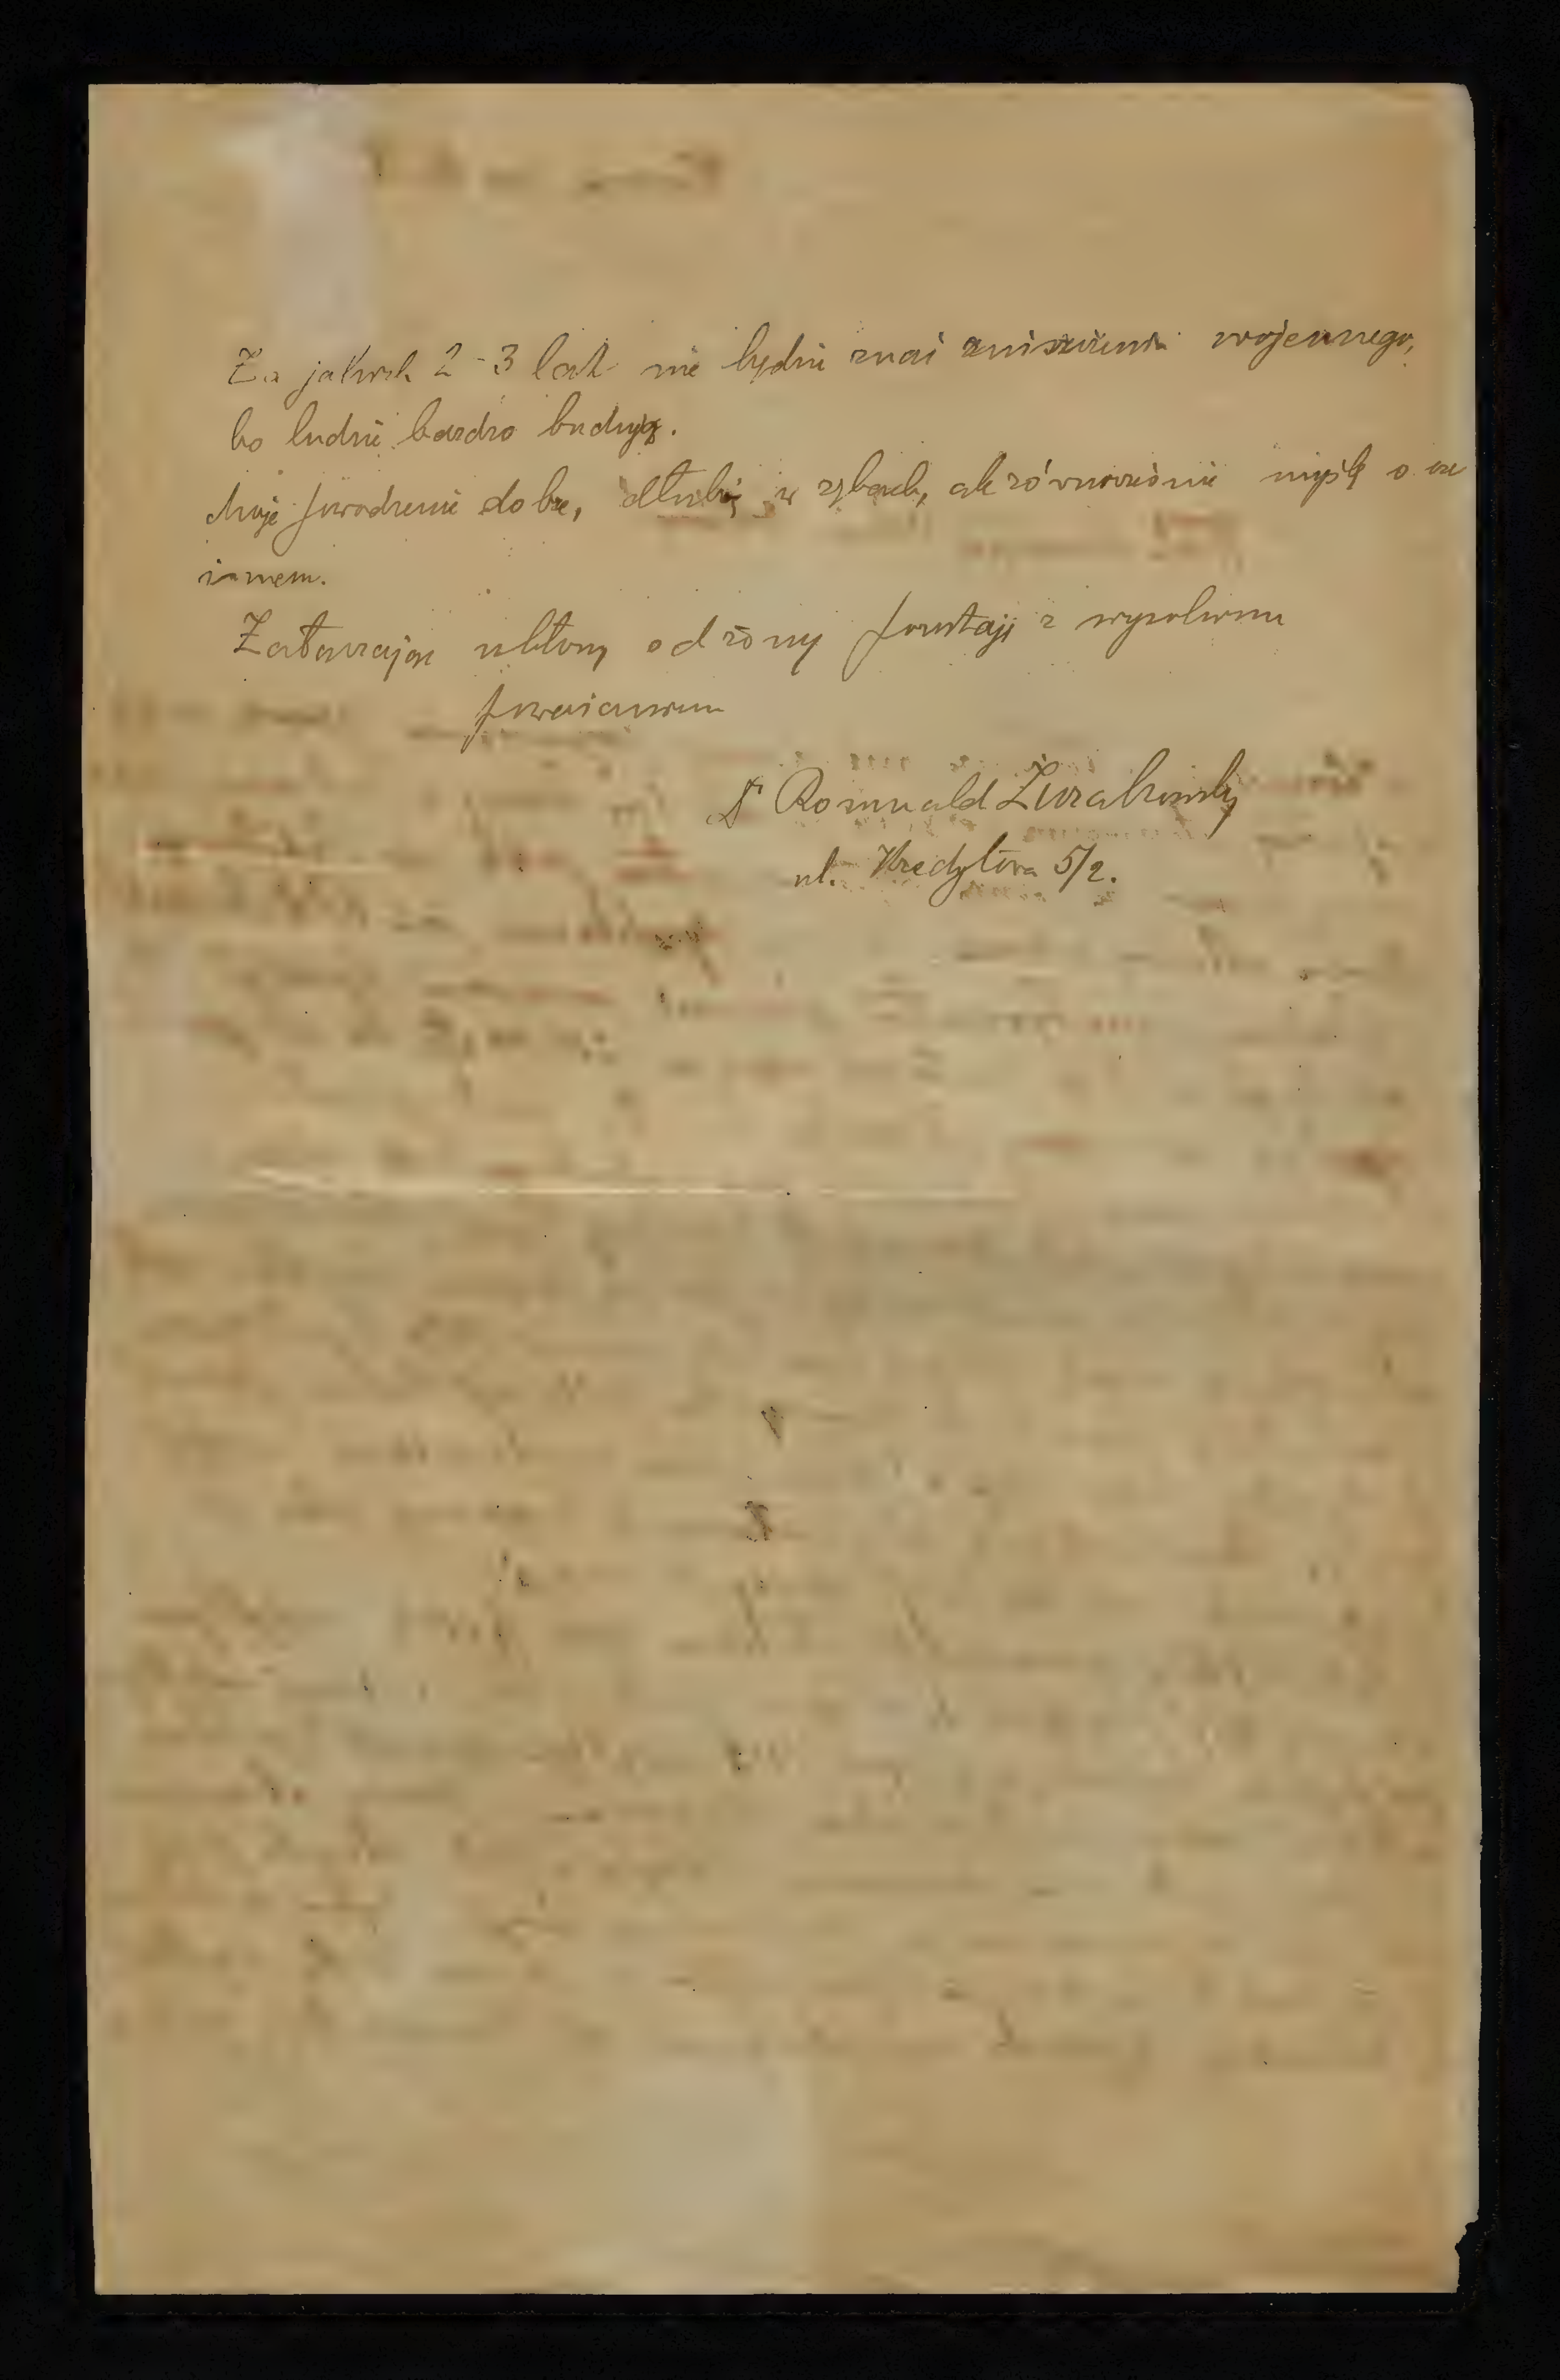 Za jakich 2-3 lat nie będzie znać zniszczenia wojennego,
bo ludzie bardzo budują.
Moje powodzenie dobre, dłubię w zębach, ale równocześnie myślę o
Załączając ukłony od żony pozostaję z wysokim
poważaniem
Dr Romuald Żurakowski
ul. Kredytowa 5/2.